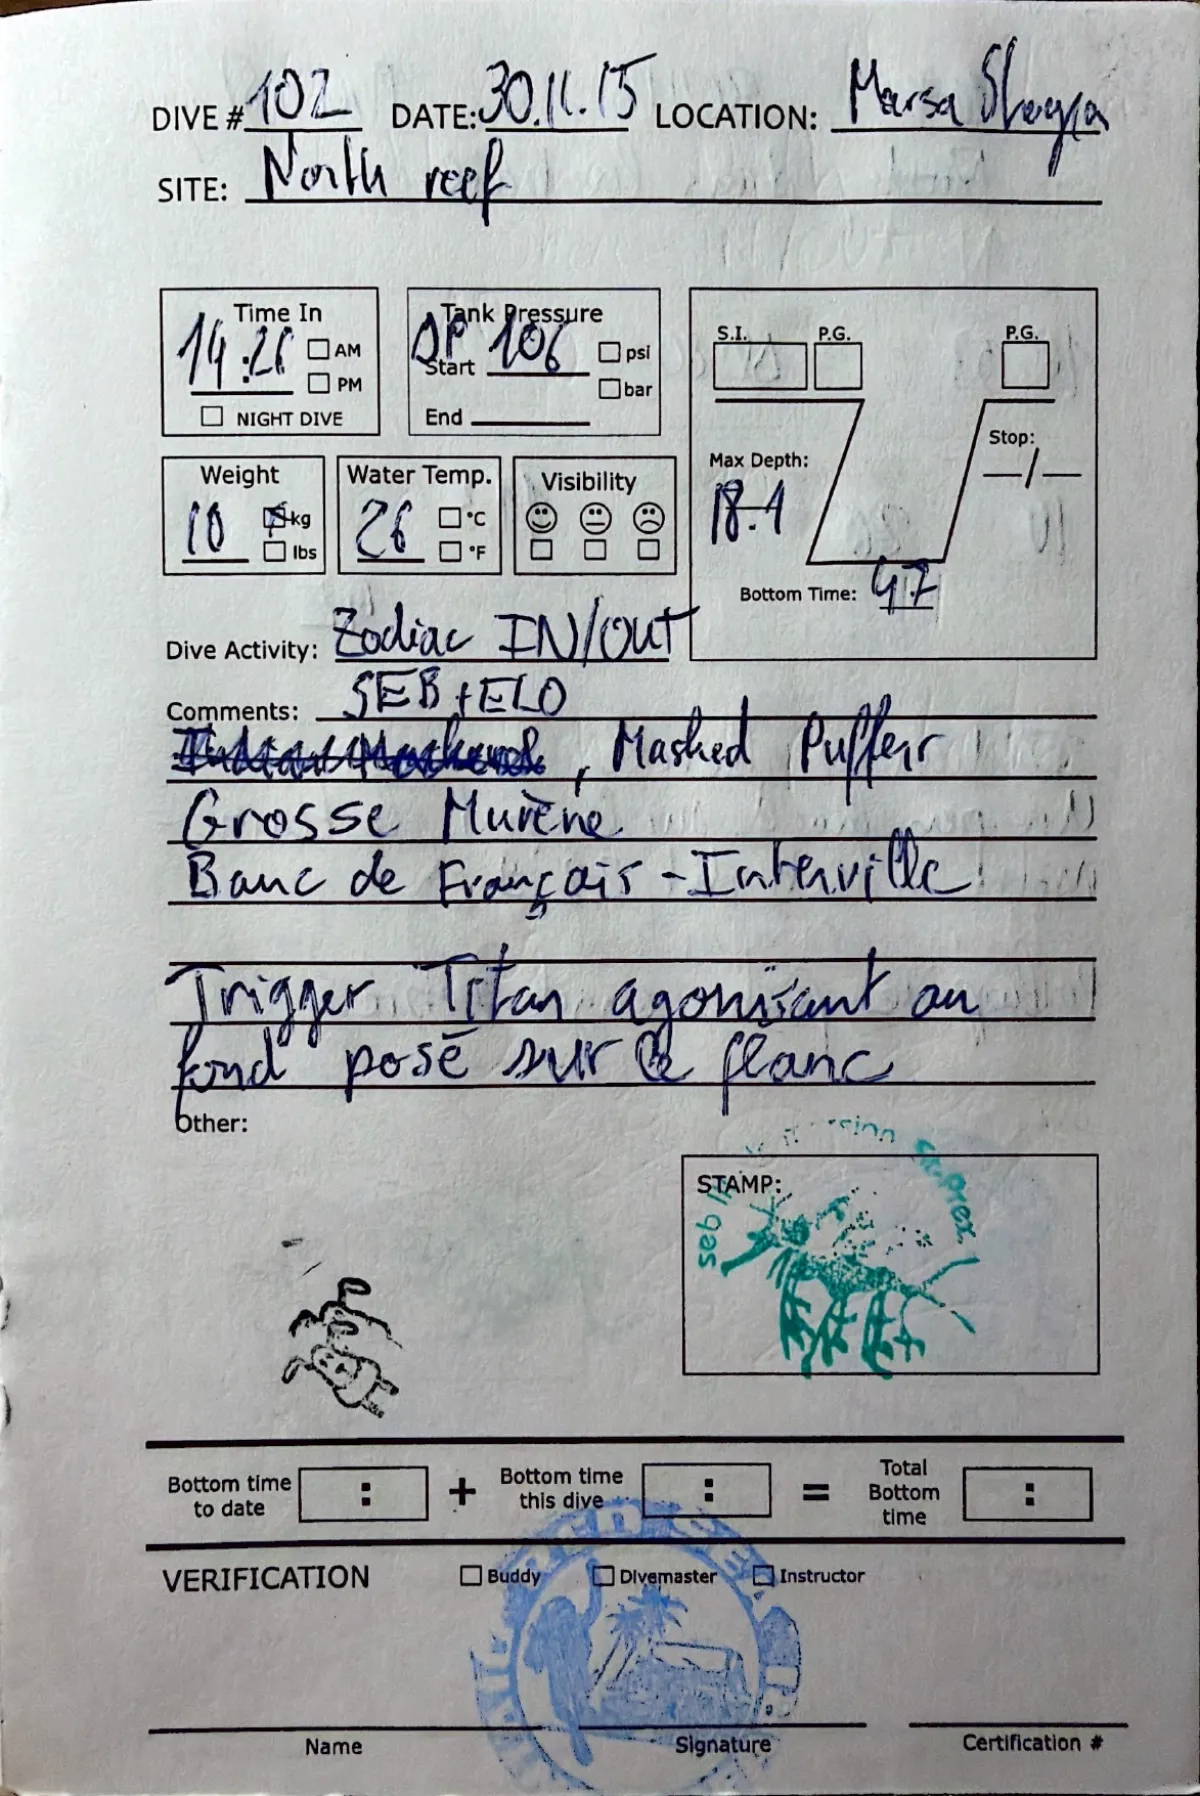 DIVE # 102 DATE: 30.11.15 LOCATION: Marsa Shagra
SITE: North reef
Time In
14:26
AM
PM
NIGHT DIVE
Tank Pressure
ΔP 106
Start
psi
bar
End
S.I. P.G. P.G.
Stop:
—/—
Max Depth:
18.1
Bottom Time: 47
Weight
10 kg
lbs
Water Temp.
26 °C
°F
Visibility
Dive Activity: Zodiac IN/OUT
Comments: SEB + ELO
, Masked Puffer
Grosse Murène
Banc de Français - Interville
Trigger Titan agonisant au
fond posé sur le flanc
Other:
STAMP:
seb
Bottom time
to date
:
+
Bottom time
this dive
:
=
Total
Bottom
time
:
VERIFICATION Buddy Divemaster Instructor
Name Signature Certification #